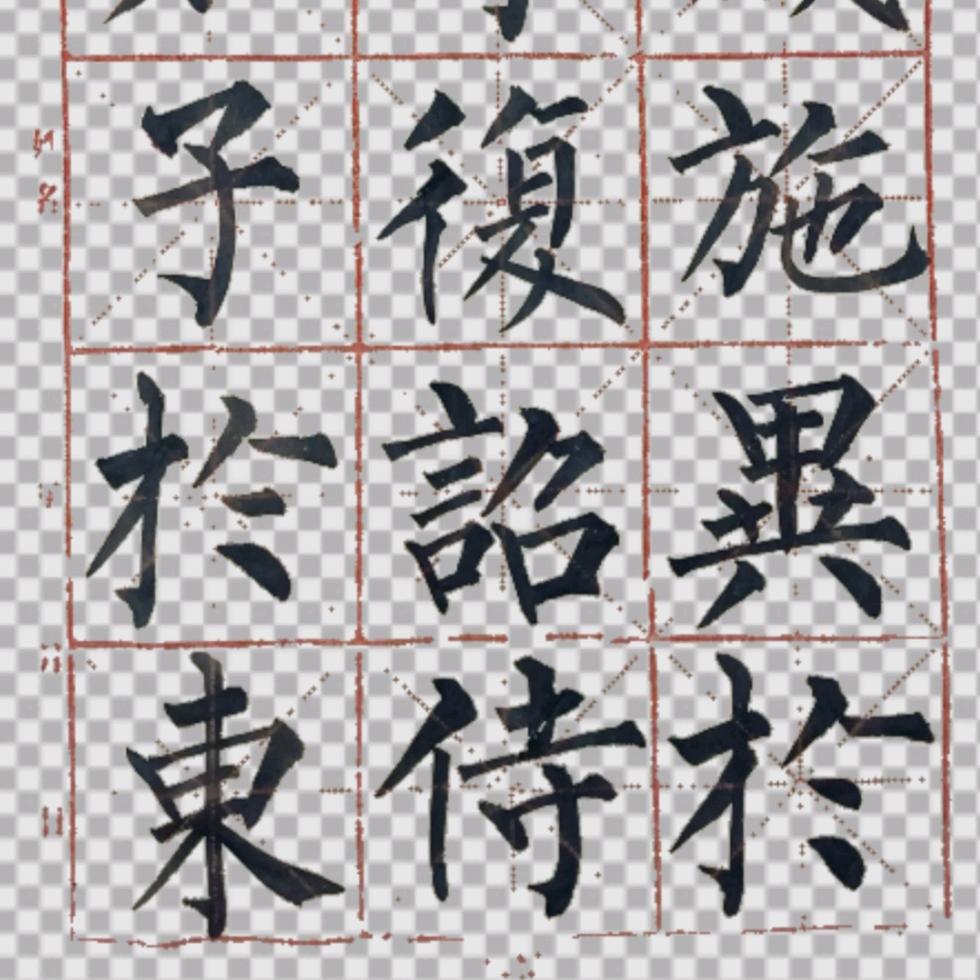 施異於
復詔侍
子於東